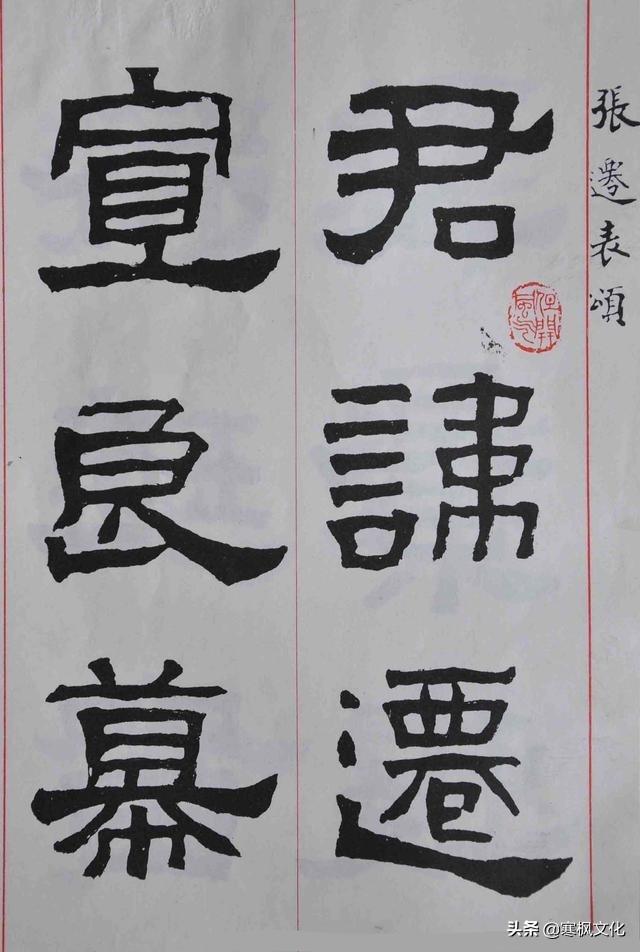 張遷表頌
君諱遷
宣良幕
头条 @寒枫文化